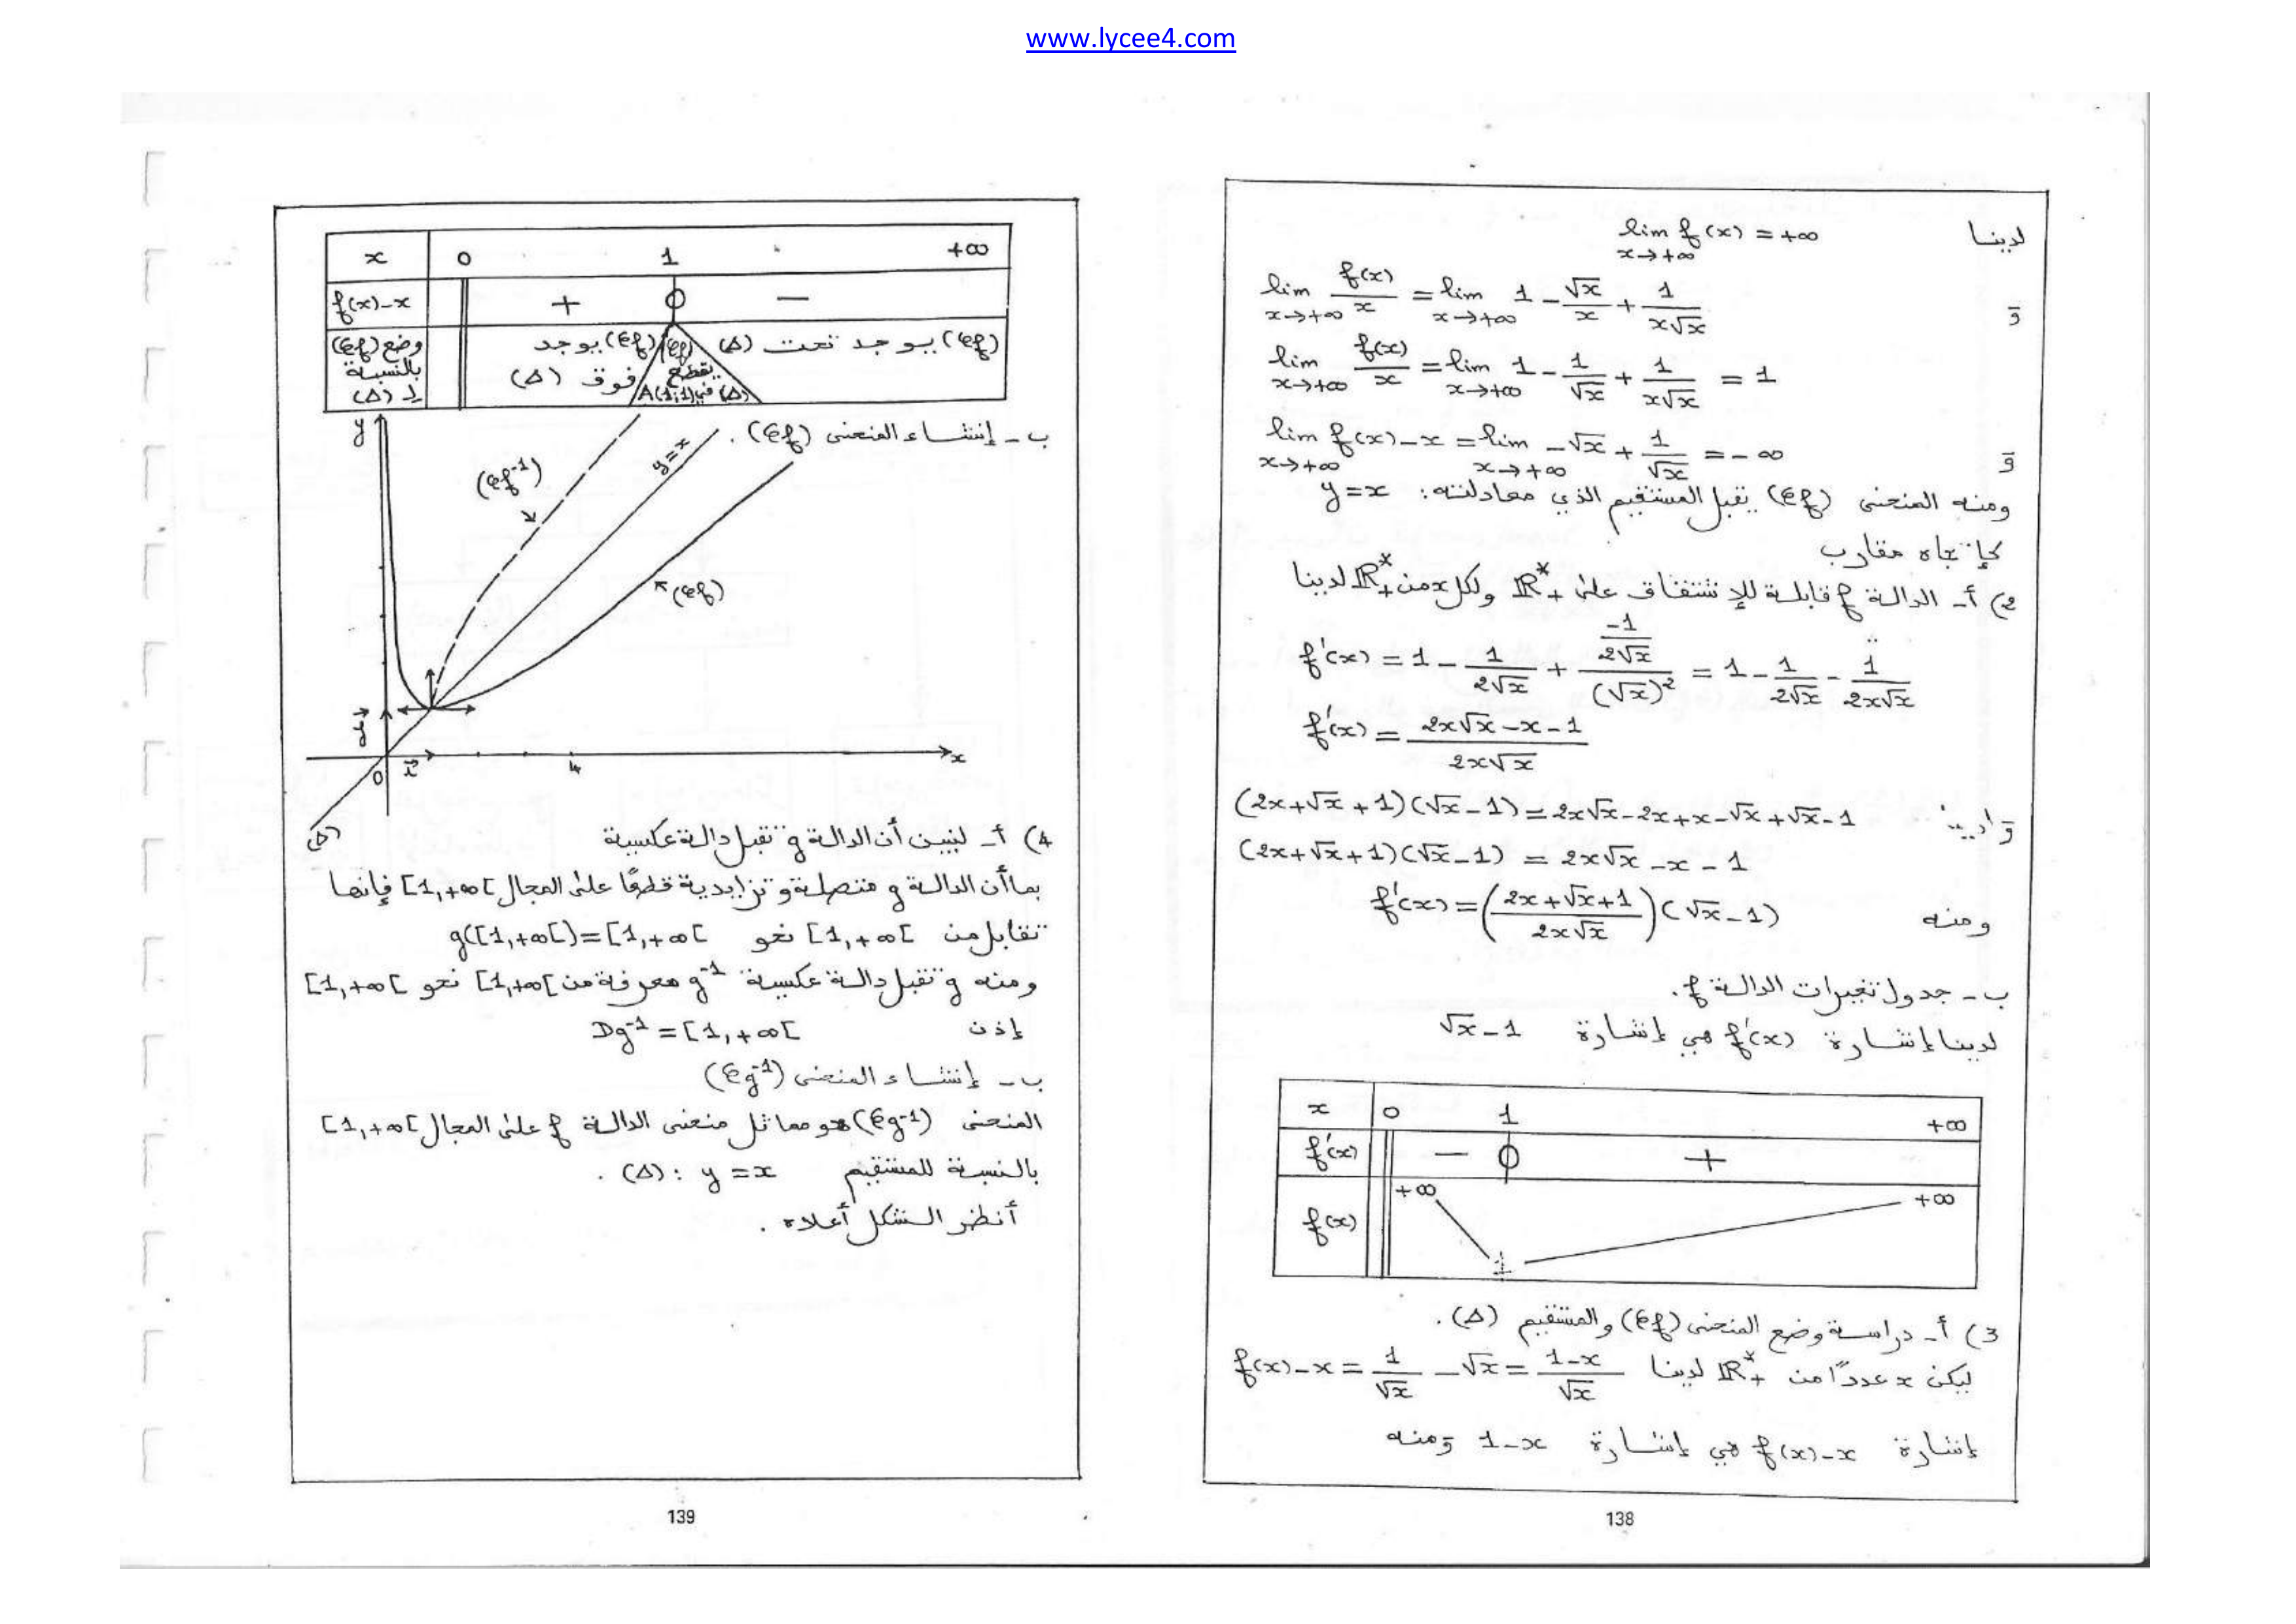 www.lycee4.com
لدينا lim f(x) = +∞
x→+∞
و lim f(x)/x = lim 1 - √x/x + 1/(x√x)
x→+∞ x→+∞
lim f(x)/x = lim 1 - 1/√x + 1/(x√x) = 1
x→+∞ x→+∞
و lim f(x)-x = lim -√x + 1/√x = -∞
x→+∞ x→+∞
ومنه المنحنى (𝒞f) يقبل المستقيم الذي معادلته: y=x
كإتجاه مقارب
2) أ- الدالة f قابلة للإشتقاق على ℝ*+ ولكل x من ℝ*+ لدينا
f'(x) = 1 - 1/(2√x) + (-1/(2√x))/(√x)² = 1 - 1/(2√x) - 1/(2x√x)
f'(x) = (2x√x - x - 1)/(2x√x)
(2x+√x+1)(√x-1) = 2x√x-2x+x-√x+√x-1
(2x+√x+1)(√x-1) = 2x√x - x - 1
ومنه f'(x) = ((2x+√x+1)/(2x√x))(√x-1)
ب- جدول تغيرات الدالة f.
لدينا إشارة f'(x) هي إشارة √x-1
x 0 1 +∞
f'(x) - 0 +
f(x) +∞ 1 +∞
3) أ- دراسة وضع المنحنى (𝒞f) والمستقيم (Δ).
ليكن x عددًا من ℝ*+ لدينا f(x)-x = 1/√x - √x = (1-x)/√x
إشارة f(x)-x هي إشارة 1-x ومنه
138
x 0 1 +∞
f(x)-x + 0 -
وضع (𝒞f) بالنسبة لـ (Δ)
(𝒞f) يوجد فوق (Δ)
(𝒞f) يقطع (Δ) في A(1;1)
(𝒞f) يوجد تحت (Δ)
ب- إنشاء المنحنى (𝒞f).
y
(𝒞f⁻¹)
y=x
(𝒞f)
j
0 i 4 x
(Δ)
4) أ- لنبين أن الدالة g تقبل دالة عكسية
بما أن الدالة g متصلة وتزايدية قطعًا على المجال [1,+∞[ فإنها
تقابل من [1,+∞[ نحو g([1,+∞[)=[1,+∞[
ومنه g تقبل دالة عكسية g⁻¹ معرفة من [1,+∞[ نحو [1,+∞[
إذن Dg⁻¹ = [1,+∞[
ب- إنشاء المنحنى (𝒞g⁻¹)
المنحنى (𝒞g⁻¹) هو مماثل منحنى الدالة f على المجال [1,+∞[
بالنسبة للمستقيم (Δ): y=x.
أنظر الشكل أعلاه.
139